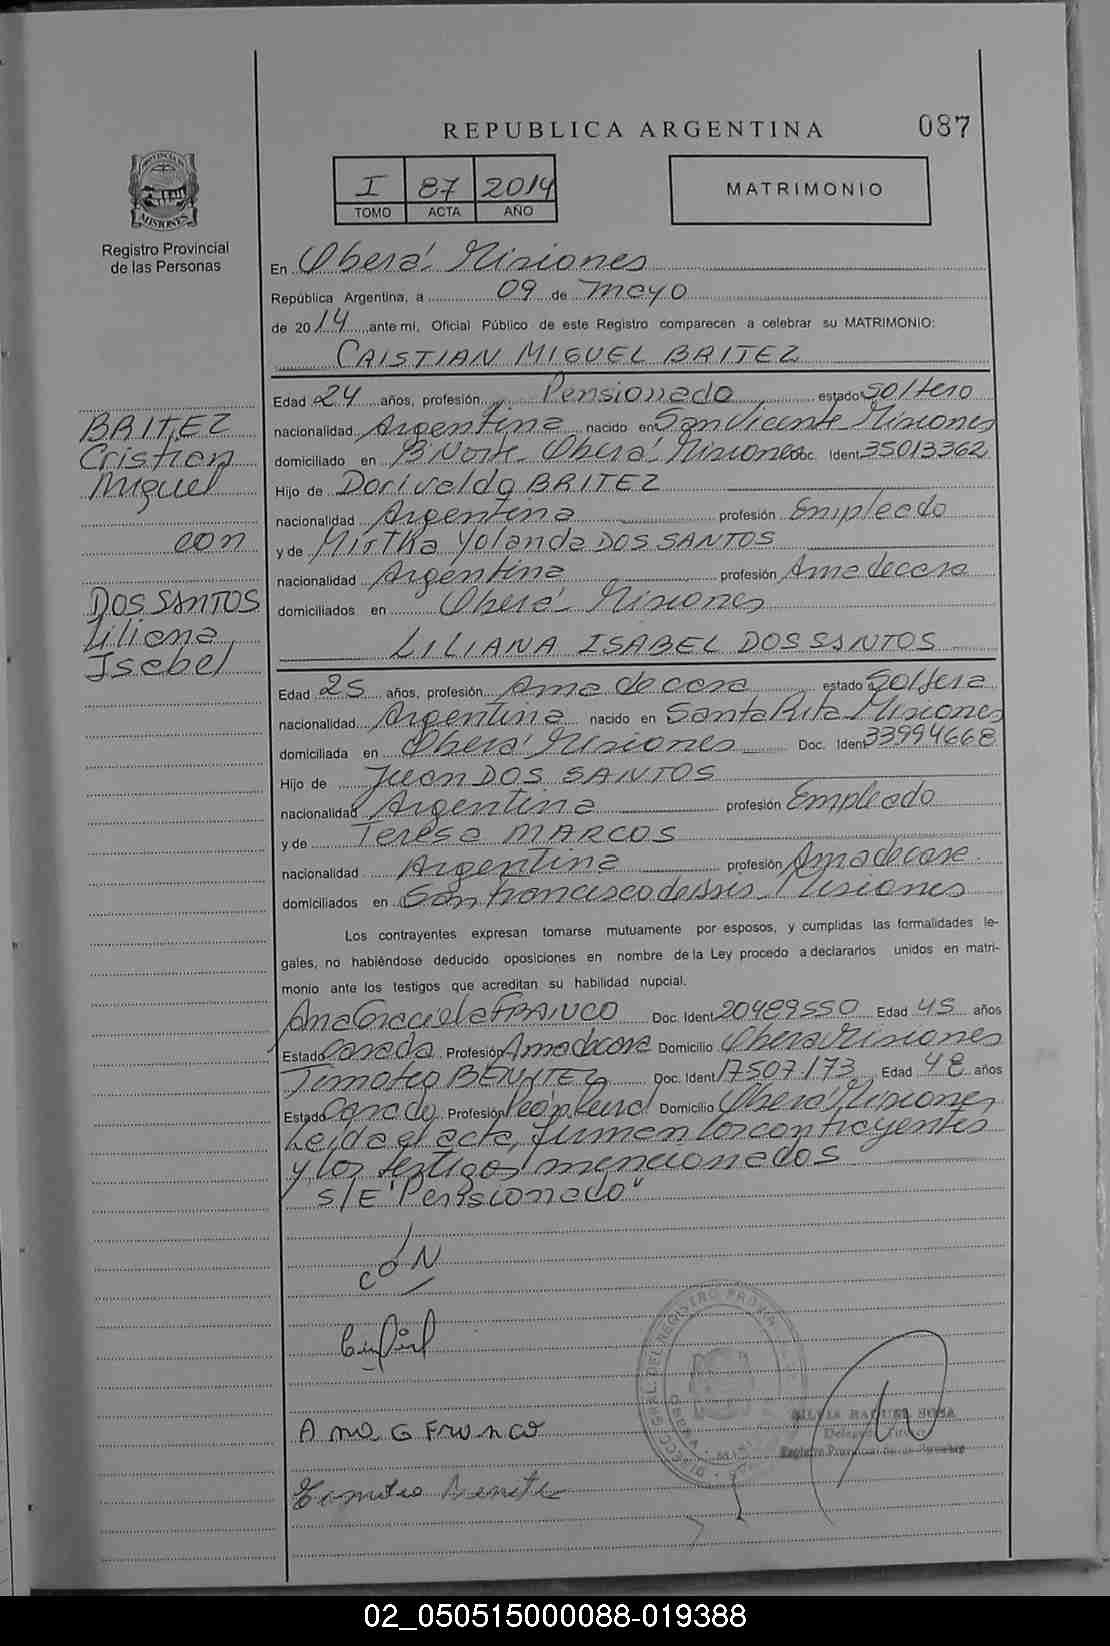 REPUBLICA ARGENTINA 087
I 87 2014
TOMO ACTA AÑO
MATRIMONIO
PROVINCIA DE
MISIONES
Registro Provincial
de las Personas
En Oberá Misiones
República Argentina, a 09 de mayo
de 2014 ante mi, Oficial Público de este Registro comparecen a celebrar su MATRIMONIO:
CRISTIAN MIGUEL BRITEZ
BRITEZ
Cristian
Miguel
con
DOS SANTOS
Liliana
Isabel
Edad 24 años, profesión Pensionado estado Soltero
nacionalidad Argentina nacido en San Vicente Misiones
domiciliado en Bº Norte Oberá Misiones Doc. Ident 35013362
Hijo de Dorivaldo BRITEZ
nacionalidad Argentina profesión Empleado
y de Mirtha Yolanda DOS SANTOS
nacionalidad Argentina profesión Ama de casa
domiciliados en Oberá Misiones
LILIANA ISABEL DOS SANTOS
Edad 25 años, profesión Ama de casa estado Soltera
nacionalidad Argentina nacido en Santa Rita Misiones
domiciliada en Oberá Misiones Doc. Ident 33994668
Hijo de Juan DOS SANTOS
nacionalidad Argentina profesión Empleado
y de Teresa MARCOS
nacionalidad Argentina profesión Ama de casa
domiciliados en San Francisco de Asis Misiones
Los contrayentes expresan tomarse mutuamente por esposos, y cumplidas las formalidades le-
gales, no habiéndose deducido oposiciones en nombre de la Ley procedo a declararlos unidos en matri-
monio ante los testigos que acreditan su habilidad nupcial.
Ana Graciela FRANCO Doc. Ident 20489550 Edad 45 años
Estado Casada Profesión Ama de casa Domicilio Oberá Misiones
Timoteo BENITEZ Doc. Ident 17507173 Edad 48 años
Estado Casado Profesión Peón Rural Domicilio Oberá Misiones
Leída el acta, firman los contrayentes
y los testigos mencionados
S/E "Pensionado"
Ana G Franco
SILVIA RAQUEL SOSA
Registro Provincial de las Personas
02_050515000088-019388